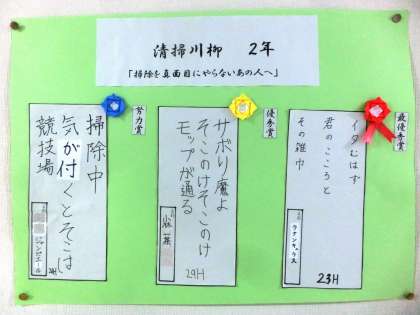 清掃川柳 2年
「掃除を真面目にやらないあの人へ」
最優秀賞
イタむはず
君のこころと
その雑巾
23H
優秀賞
サボり魔よ
そこのけそこのけ
モップが通る
小林一葉
29H
努力賞
掃除中
気が付くとそこは
競技場